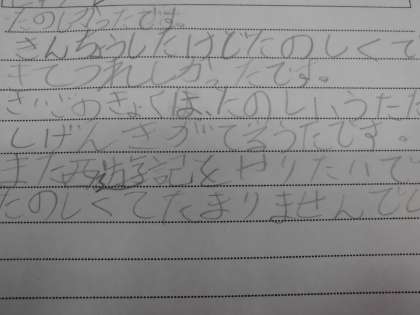 たのしかったです。
きんちょうしたけどたのしくて
きてうれしかったです。
さいごのきょくは、たのしいうただ
しげんきがでるうたです。
また西遊記をやりたいで
たのしくてたまりませんでし